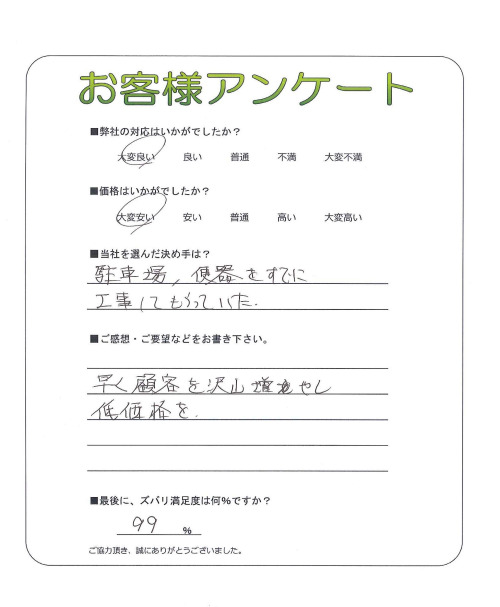 お客様アンケート
■弊社の対応はいかがでしたか？
大変良い 良い 普通 不満 大変不満
■価格はいかがでしたか？
大変安い 安い 普通 高い 大変高い
■当社を選んだ決め手は？
駐車場，便器をすでに
工事してもらっていた．
■ご感想・ご要望などをお書き下さい。
早く顧客を沢山増やし
低価格を．
■最後に、ズバリ満足度は何%ですか？
99 %
ご協力頂き、誠にありがとうございました。